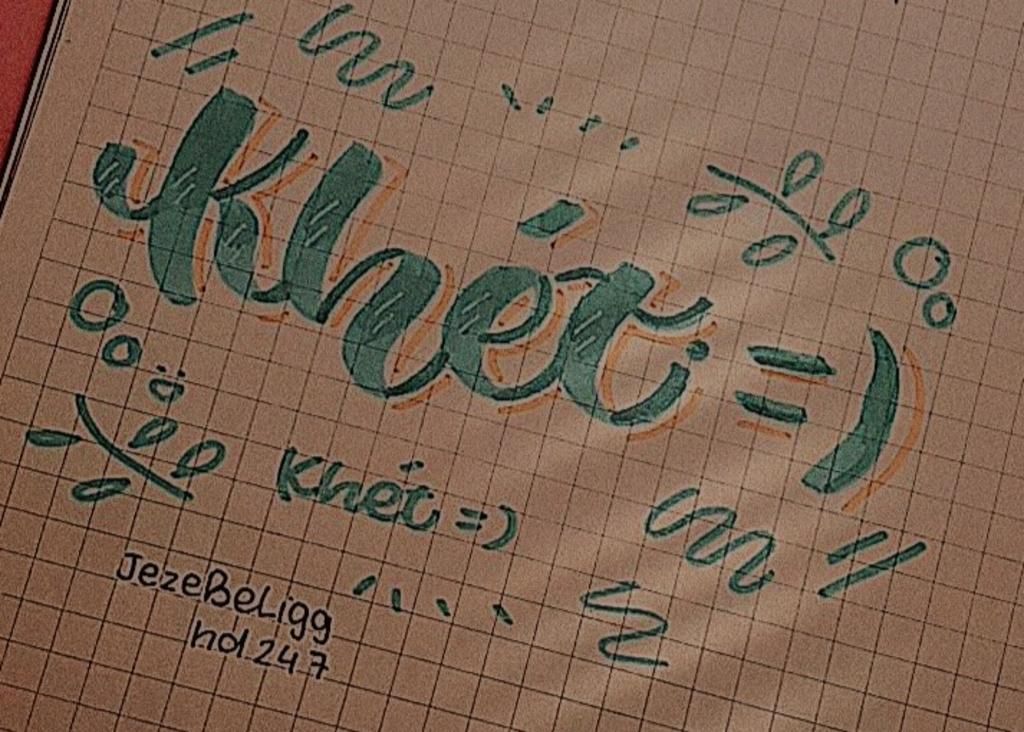 Khéc =)
Khéc =)
JezeBeLigg
hol.247